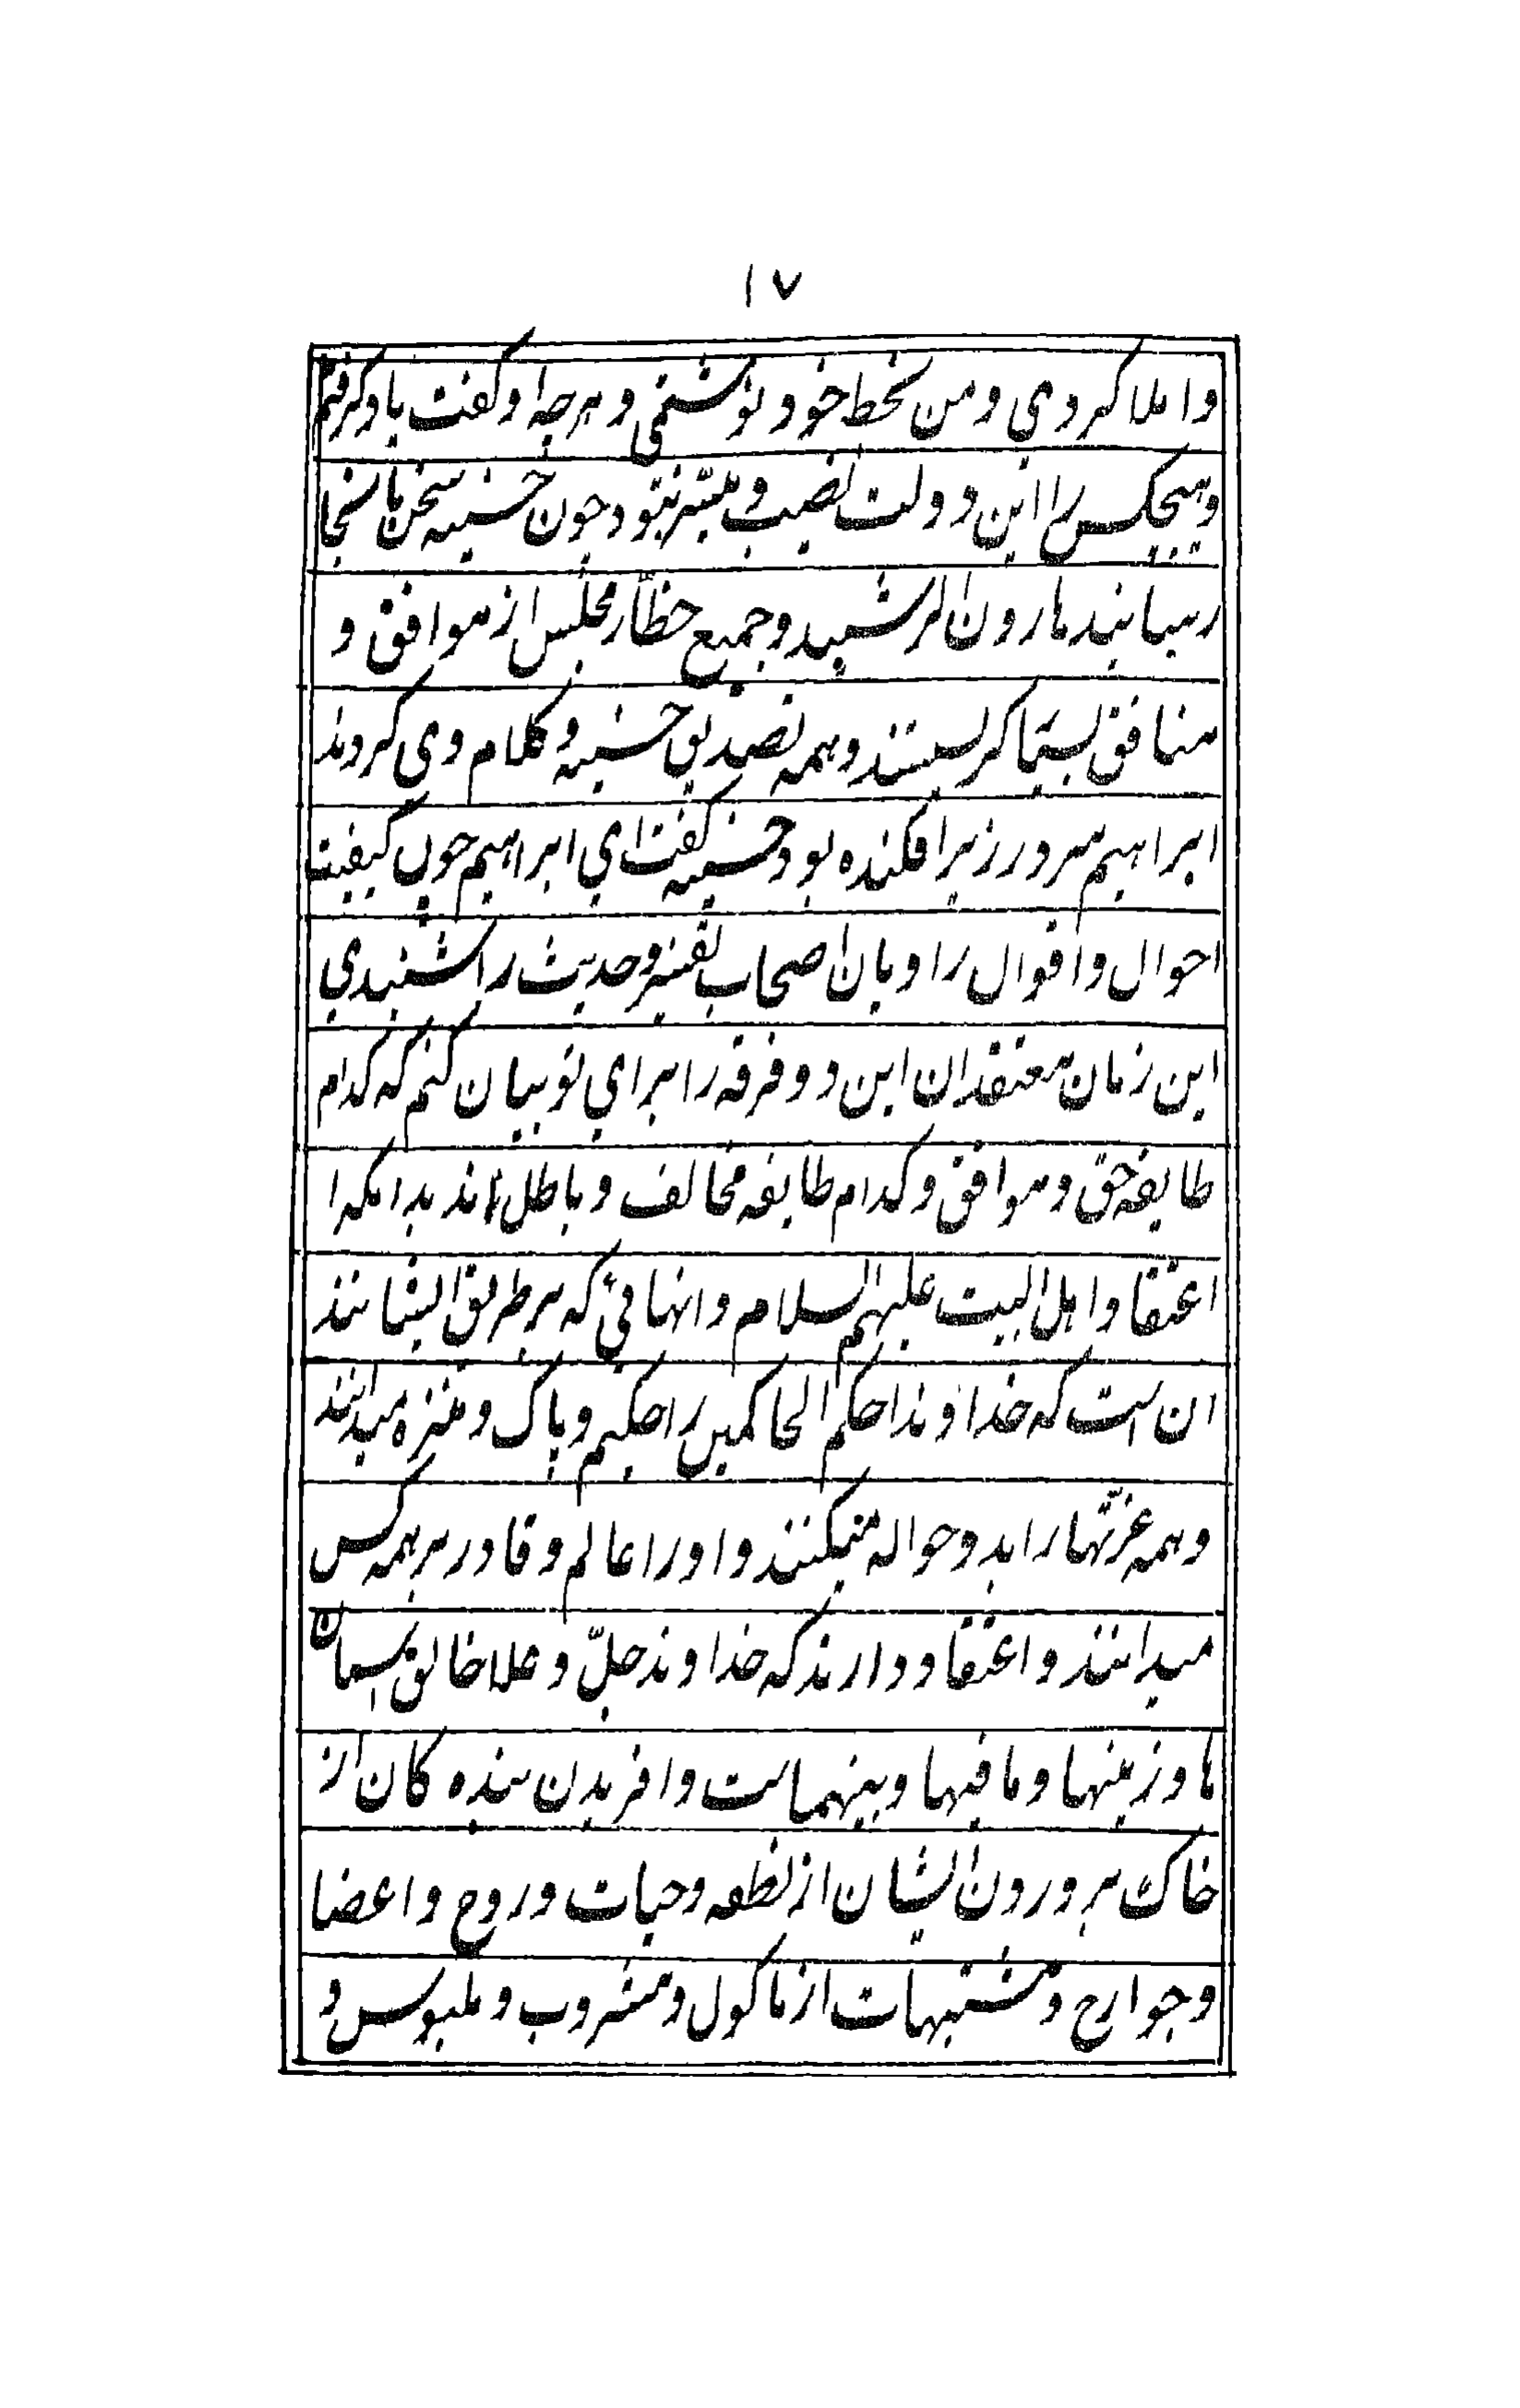 ۱۷
و املا کردی و من بخط خود نوشتمی و هرچه او گفت یاد گرفتم
و هیچکس را این دولت نصیب و میسر نبود چون حسنیه سخن بانجا
رسانید هارون الرشید و جمیع حظّار مجلس از موافق و
منافق بسیار کریستند و همه تصدیق حسنیه و کلام وی کردند
ابراهیم سر در زیر افکنده بود حسنیه گفت ای ابراهیم چون کیفیت
احوال و اقوال راویان اصحاب تفسیر و حدیث را شنیدی
این زمان معتقدان این دو فرقه را برای تو بیان کنم که کدام
طایفه حق و موافق و کدام طایفه مخالف و باطل اند بدانکه ا
اعتقاد اهل البیت علیهم السلام و انهائی که بر طریق ایشانند
ان است که خداوند احکم الحاکمین را حکیم و پاک و منزه میدانند
و همه عزّتها را بدو حواله میکنند و او را عالم و قادر بر همه کس
میدانند و اعتقاد دارند که خداوند جلّ و علا خالق آسمان
ها و زمینها و ما فیها و بینهماست و افریدن بنده کان از
خاک پروردن ایشان از نطفه و حیات و روح و اعضا
و جوارح و مشتبهات از ماکول و مشروب و ملبوس و